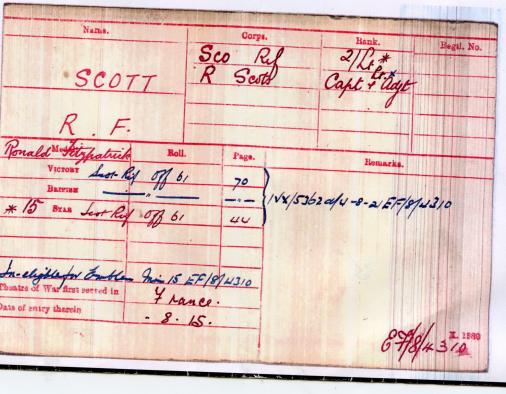 Name. Corps. Rank. Regtl. No.
SCOTT Sco Rif 2/Lt *
R Scots Lt. *
Capt + Adjt
R. F.
Ronald Fitzpatrick
Medal. Roll. Page. Remarks.
VICTORY Scot Rif Off 61 70
BRITISH —"— —"—
* 15 STAR Scot Rif Off 61 44
EF/8/4310
In-eligible for Emblem EF/8/4310
Theatre of War first served in France.
Date of entry therein - 8. 15.
K. 1380
EF/8/4310